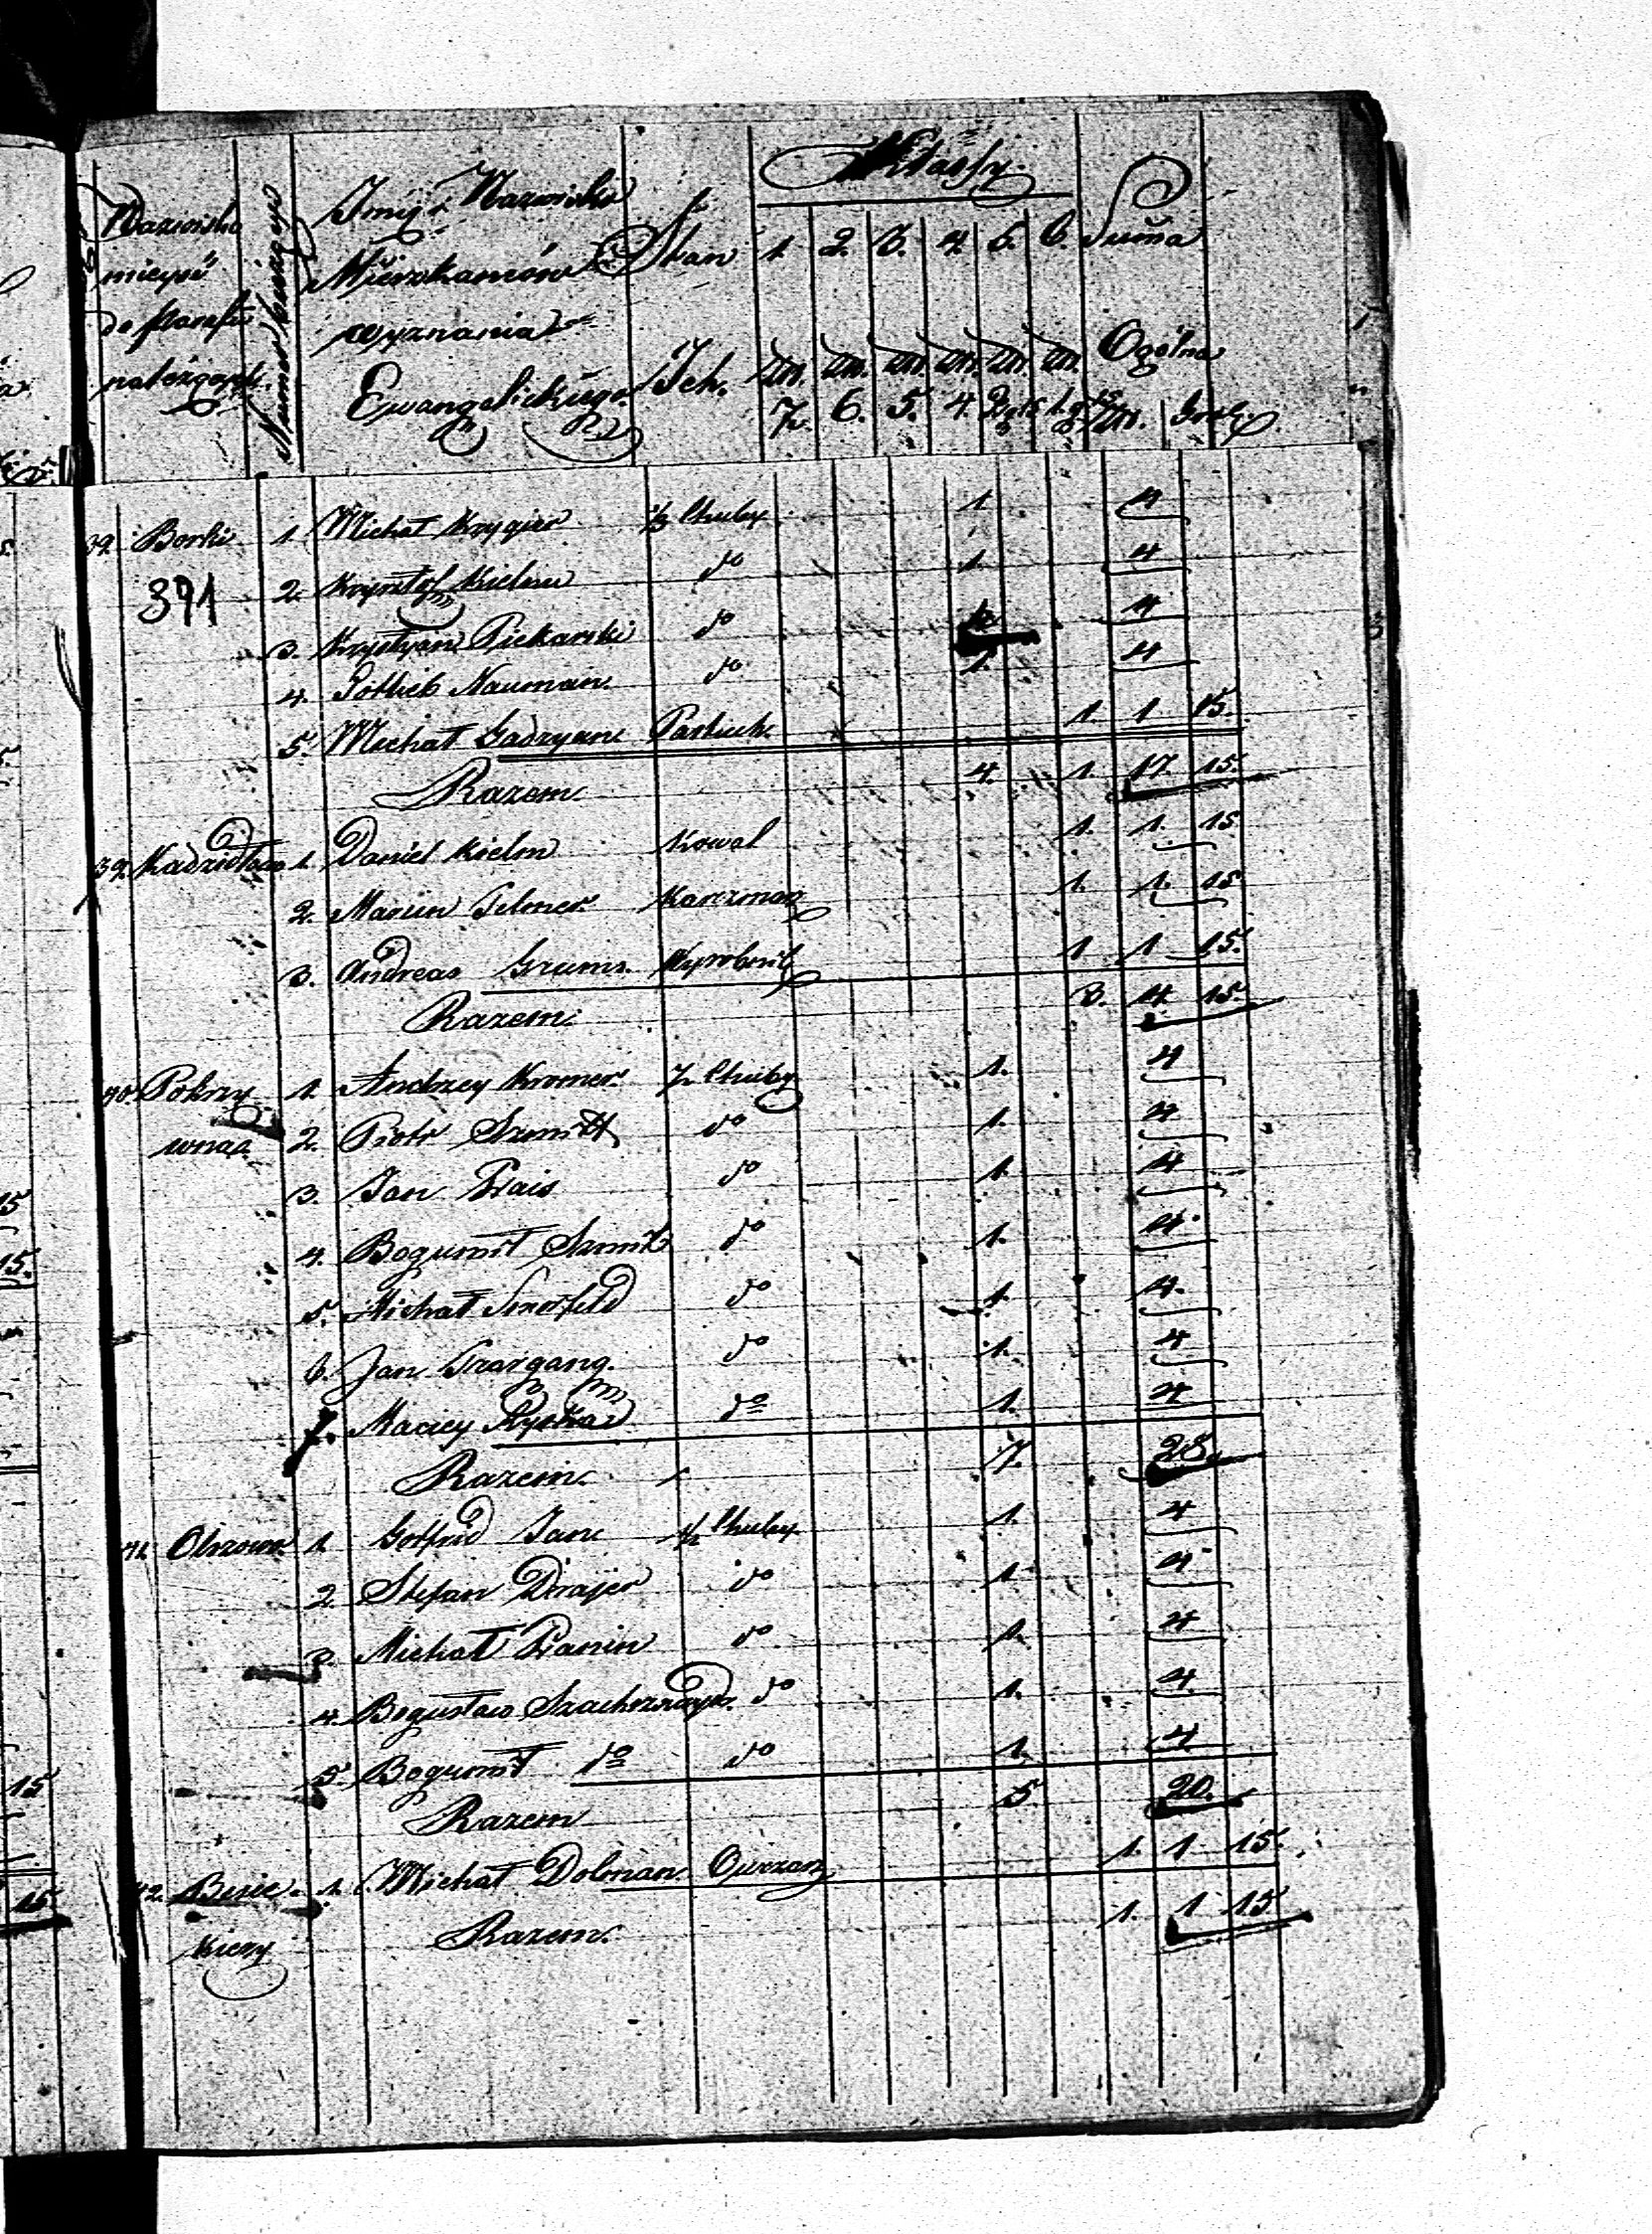 Nazwisko mieysc do Parafii należących
Numer bieżący
Imię i Nazwisko Mieszkańców wyznania Ewangelickiego
Stan Ich.
Klassy
1. 2. 3. 4. 5. 6. Suma Ogólna
7. 6. 5. 4.
39. Borki 1. Michał Krygier 1/2 Chuby 1 4
391 2. Krysztof Kielm do 1. 4
3. Krystyan Piekarski do 4
4. Gottlieb Nauman. do 1. 4
5. Michał Gadzyan Pastuch. 1. 1 15.
Razem. 4. 1. 17. 15.
39. 1. Daniel Kielm Kowal 1. 1. 15.
2. Marcin Karczmarz 1. 1. 15
3. Andreas Grums. Wyrobnik 1 1 15.
Razem. 3. 4. 15.
40. Pokrzywnica 1. Andrzey Kromer. 1/2 Chuby 1. 4
2. Piotr Szmitt do 1. 4
3. Jan Prais do 1. 4
4. Bogumił Szmit do 1. 4.
5. Michał do 1. 4.
6. Jan do 1. 4
7. Maciey do 1. 4
Razem. 7. 28.
41. 1. Gotfrid Jane 1/2 Chuby 1. 4
2. Stefan Drajer do 1. 4
3. Michał Pranin do 1. 4
4. Bogusław do 1. 4.
5. Bogumił do do 1. 4
Razem 5. 20.
42. 1. Michał Dolman. Owczarz 1. 1 15.
Razem. 1. 1 15